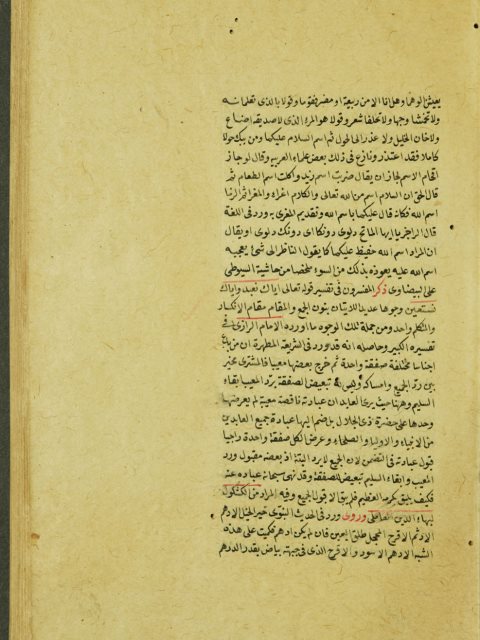 يعيش ابوهما وهل انا الا من ربيعة او مضر فقوما وقولا بالذى تعلمانه
ولا تخمشا وجها ولا تحلقا شعر وقولا هو المرء الذى لا صديقه اضاع
ولا خان الخليل ولا عذر الى الحول ثم اسم السلام عليكما ومن يبك حولا
كاملا فقد اعتذر ونازع فى ذلك بعض علماء العربيه وقال لو جاز
اقحام الاسم لجاز ان يقال ضربت اسم زيد واكلت اسم الطعام ثم
قال الحق ان السلام اسم من الله تعالى والكلام اغراء والمغرا الزما
اسم الله فكانه قال عليكما باسم الله وتقديم المغرى به ورد فى اللغة
قال الراجز يا ايها المائح دلوى دونكا اى دونك دلوى او يقال
ان المراد اسم الله حفيظ عليكما كما يقول الناظر الى شئ يعجبه
اسم الله عليه يعوذه بذلك من السوء ملخصا من حاشية السيوطى
على البيضاوى ذكر المفسرون فى تفسير قوله تعالى اياك نعبد واياك
نستعين وجوها عديدة للاتيان بنون الجمع والمقام مقام الانكسار
والمتكلم واحد ومن جملة تلك الوجوه ما اورده الامام الرازى فى
تفسيره الكبير وحاصله انه قد ورد فى الشريعة المطهرة ان من باع
اجناسا مختلفة صفقة واحدة ثم خرج بعضها معيبا فالمشترى مخير
بين رد الجميع وامساكه وليس له تبعيض الصفقة برد المعيب وابقاء
السليم وهنا حيث يرى العابد ان عبادته ناقصة معيبة لم يعرضها
وحدها على حضرة ذى الجلال بل ضم اليها عبادة جميع العابدين
من الانبياء والاولياء والصلحاء وعرض الكل صفقة واحدة راجيا
قبول عبادته فى الضمن لان الجميع لا يرد البتة اذ بعضه مقبول ورد
المعيب وابقاء السليم تبعيض للصفقة وقد نهى سبحانه عباده عنه
فكيف يليق بكرمه العظيم فلم يبق الا قبول الجميع وفيه المراد من الكشكول
لبهاء الدين العاملى وروى ورد فى الحديث النبوى خير الخيل الادهم
الارثم الاقرح المحجل طلق اليمين فان لم يكن ادهم فكميت على هذه
الشبه الادهم الاسود والاقرح الذى فى جبهته بياض بقدر الدرهم